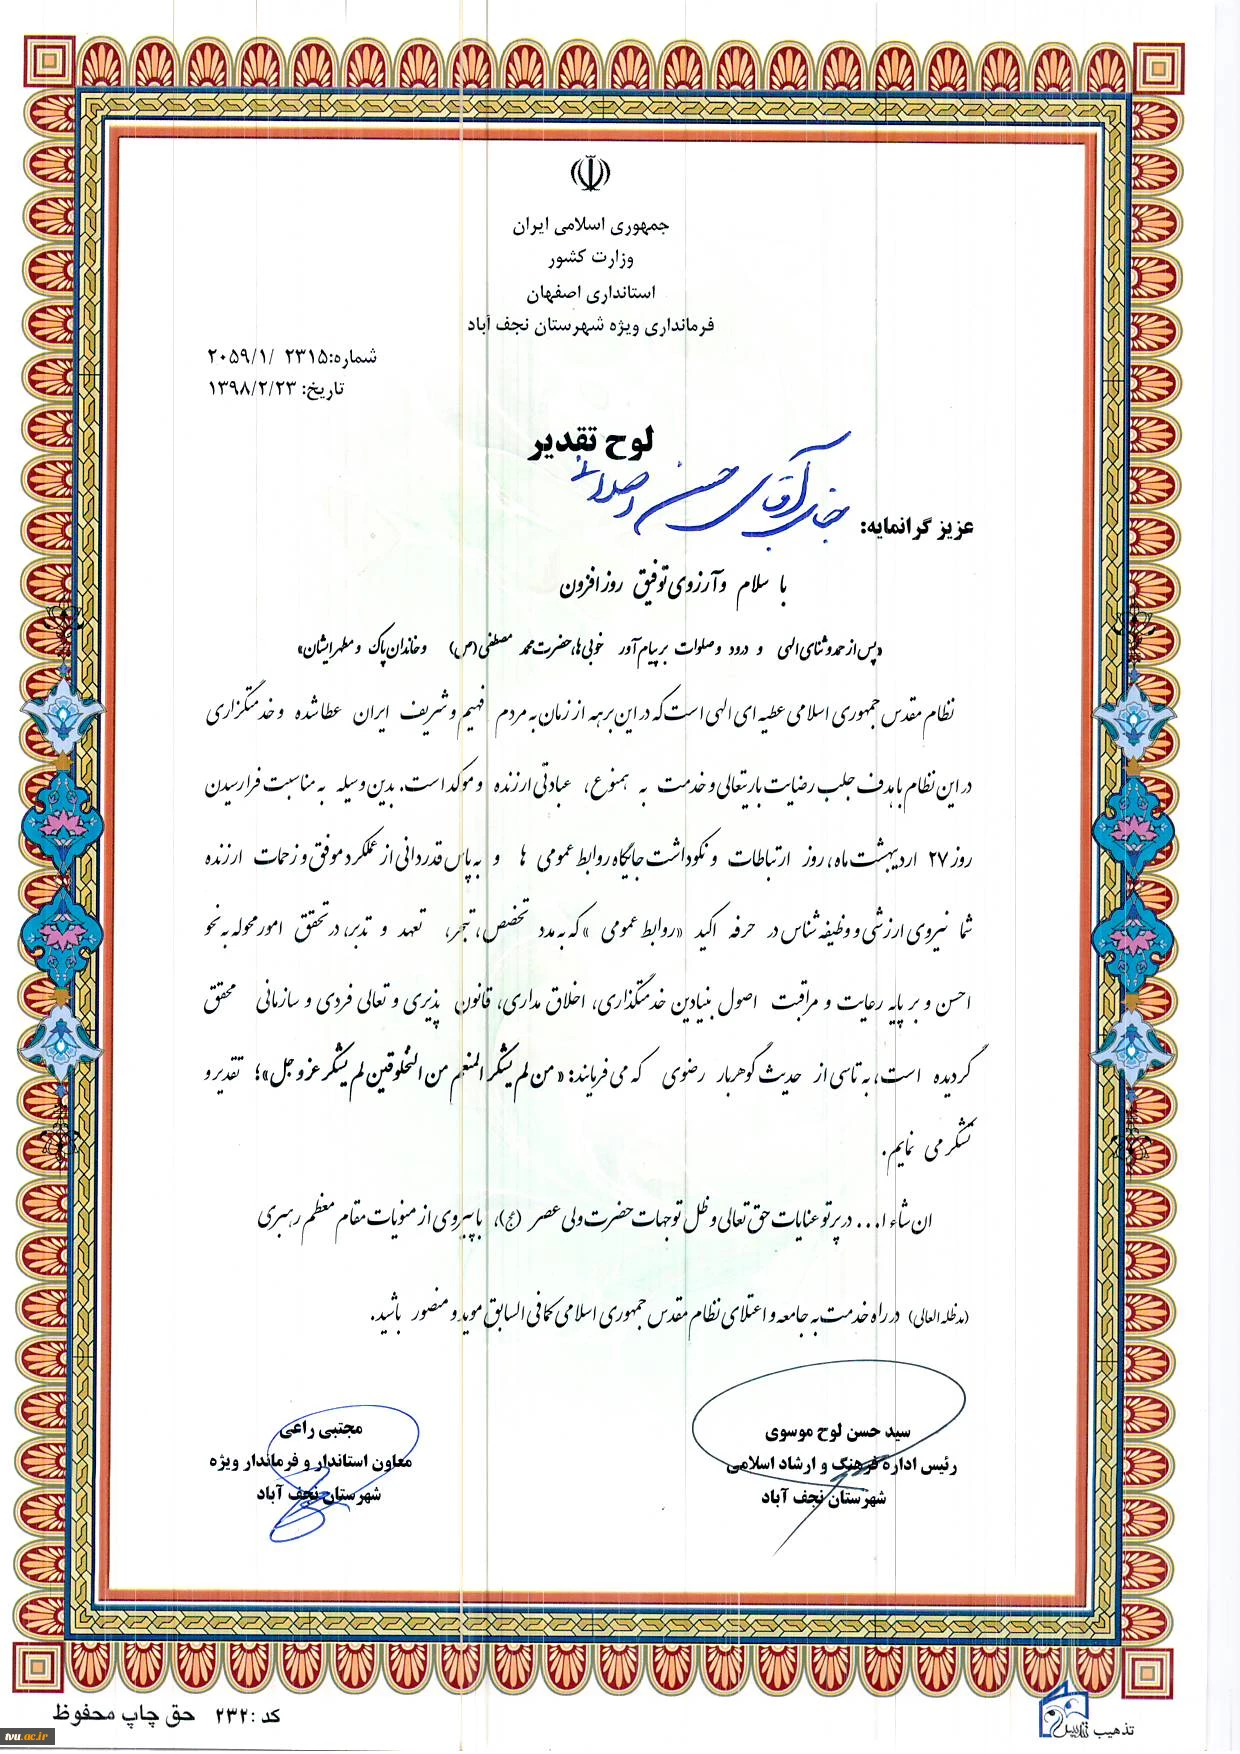 جمهوری اسلامی ایران
وزارت کشور
استانداری اصفهان
فرمانداری ویژه شهرستان نجف آباد
شماره: ۲۳۱۵ /۲۰۵۹/۱
تاریخ: ۱۳۹۸/۲/۲۳
لوح تقدیر
عزیز گرانمایه: جناب آقای حسن اصلانی
با سلام و آرزوی توفیق روز افزون
«پس از حمد و ثنای الهی و درود و صلوات بر پیام آور خوبی ها، حضرت محمد مصطفی (ص) و خاندان پاک و مطهر ایشان»
نظام مقدس جمهوری اسلامی عطیه ای الهی است که در این برهه از زمان به مردم فهیم و شریف ایران عطا شده و خدمتگزاری
در این نظام با هدف جلب رضایت باریتعالی و خدمت به همنوع، عبادتی ارزنده و موکد است. بدین وسیله به مناسبت فرارسیدن
روز ۲۷ اردیبهشت ماه، روز ارتباطات و نکوداشت جایگاه روابط عمومی ها و به پاس قدردانی از عملکرد موفق و زحمات ارزنده
شما نیروی ارزشی و وظیفه شناس در حرفه اکید «روابط عمومی» که به مدد تخصص، تبحر، تعهد و تدبر، در تحقق امور محوله به نحو
احسن و بر پایه رعایت و مراقبت اصول بنیادین خدمتگذاری، اخلاق مداری، قانون پذیری و تعالی فردی و سازمانی محقق
گردیده است، به تاسی از حدیث گوهربار رضوی که می فرمایند: «من لم یشکر المنعم من المخلوقین لم یشکر عزوجل»؛ تقدیر و
تشکر می نمایم.
ان شاء ا... در پرتو عنایات حق تعالی و ظل توجهات حضرت ولی عصر (عج)، با پیروی از منویات مقام معظم رهبری
(مدظله العالی) در راه خدمت به جامعه و اعتلای نظام مقدس جمهوری اسلامی کمافی السابق موید و منصور باشید.
سید حسن لوح موسوی
رئیس اداره فرهنگ و ارشاد اسلامی
شهرستان نجف آباد
مجتبی راعی
معاون استاندار و فرماندار ویژه
شهرستان نجف آباد
کد :۲۳۲ حق چاپ محفوظ
تذهیب تندیس
tvu.ac.ir